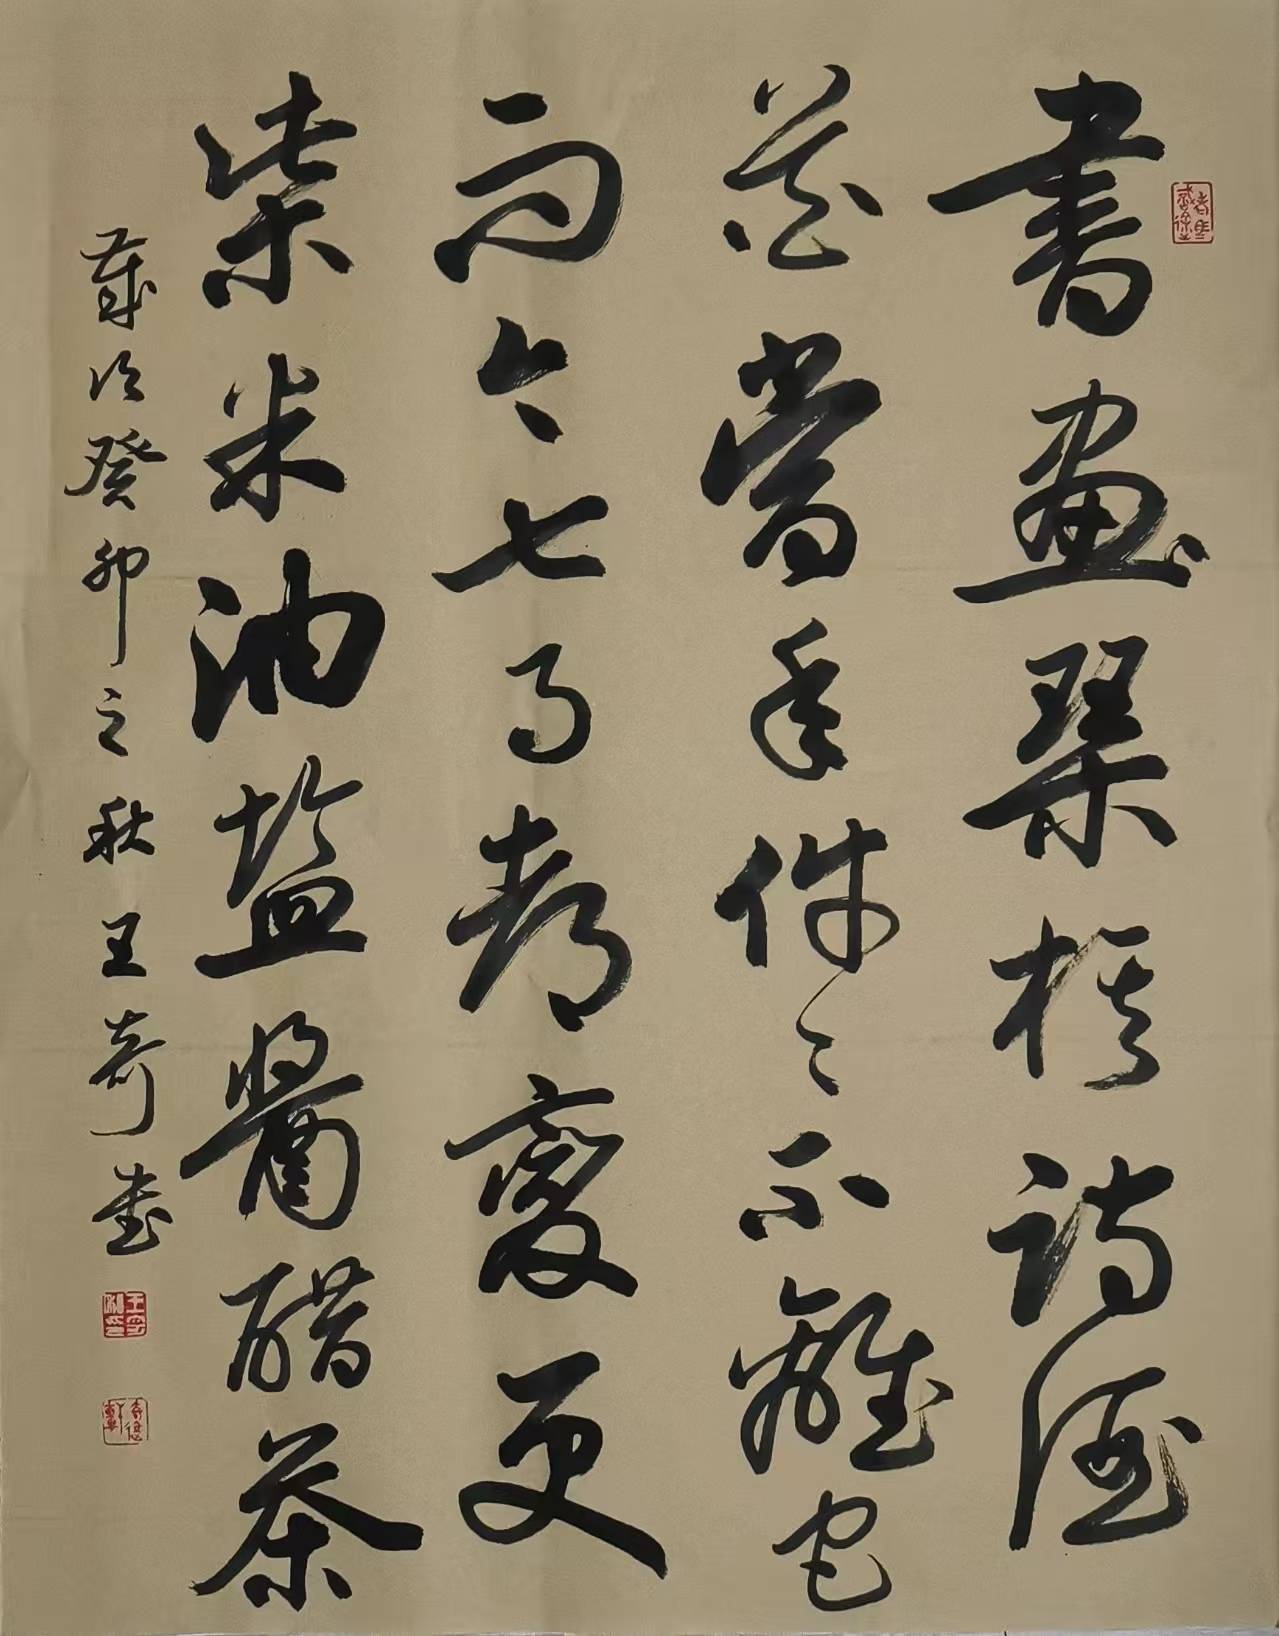 書畫琴棋詩酒
花當年件々不離它
而今七事都變更
柴米油鹽醬醋茶
歲次癸卯之秋王奇書